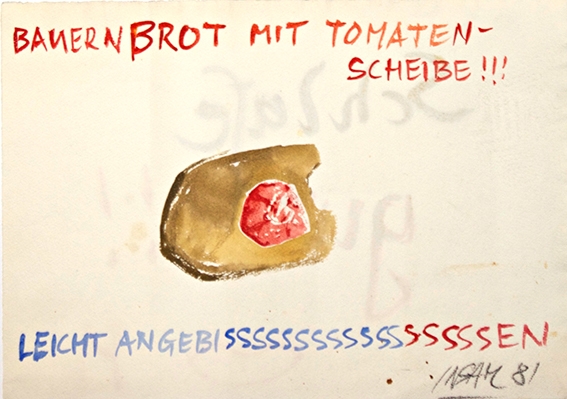 BAUERNBROT MIT TOMATEN-
SCHEIBE!!!
LEICHT ANGEBISSSSSSSSSSSSSSSSSEN
INSAM 81